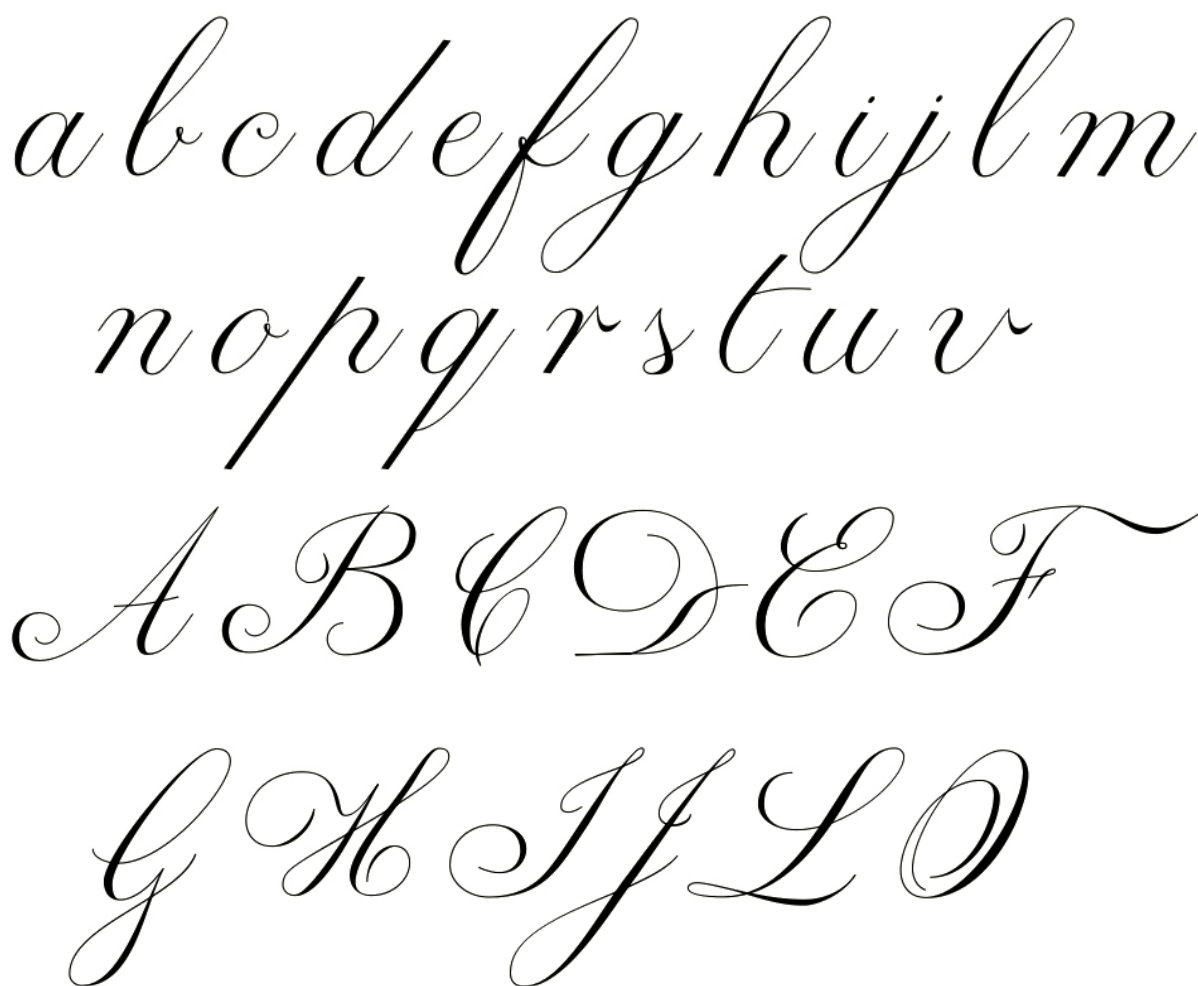 a b c d e f g h i j l m
n o p q r s t u v
A B C D E F
G H I J L O